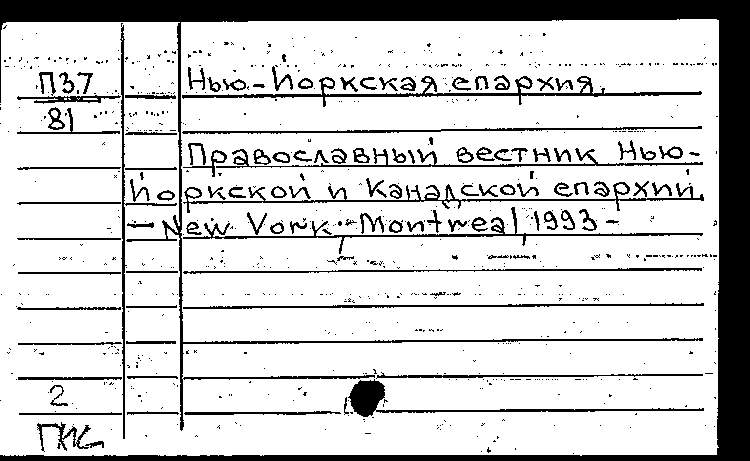 П37 Нью-Йоркская епархия.
81
Православный вестник Нью-
Йоркской и Канадской епархий.
— New York - Montreal, 1993 -
2